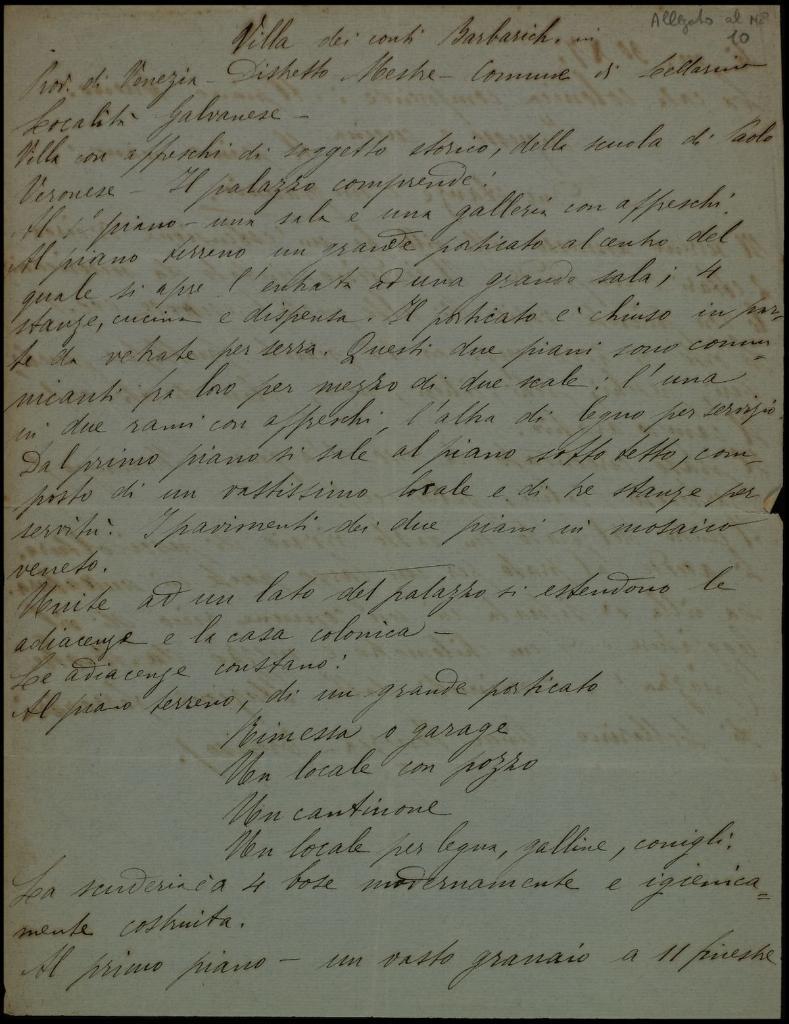 Allegato al N° 10
Villa dei conti Barbarich. in
Prov. di Venezia - Distretto Mestre - Comune di Zellarino
Località Galvanese -
Villa con affreschi di soggetto storico, della scuola di Paolo
Veronese - Il palazzo comprende:
Al 1° piano - una sala e una galleria con affreschi
Al piano terreno un grande porticato al centro del
quale si apre l'entrata ad una grande sala; 4
stanze, cucina e dispensa. Il porticato è chiuso in par-
te da vetrate per serra. Questi due piani sono comu-
nicanti fra loro per mezzo di due scale: l'una
in due rami con affreschi, l'altra di legno per servizio.
Dal primo piano si sale al piano sotto tetto, com-
posto di un vastissimo locale e di tre stanze per
servitù. I pavimenti dei due piani in mosaico
veneto.
Unite ad un lato del palazzo si estendono le
adiacenze e la casa colonica -
Le adiacenze constano:
Al piano terreno, di un grande porticato
Rimessa o garage
Un locale con pozzo
Un cantinone
Un locale per legna, galline, conigli.
La scuderia è a 4 bose modernamente e igienica=
mente costruita.
Al primo piano - un vasto granaio a 11 finestre